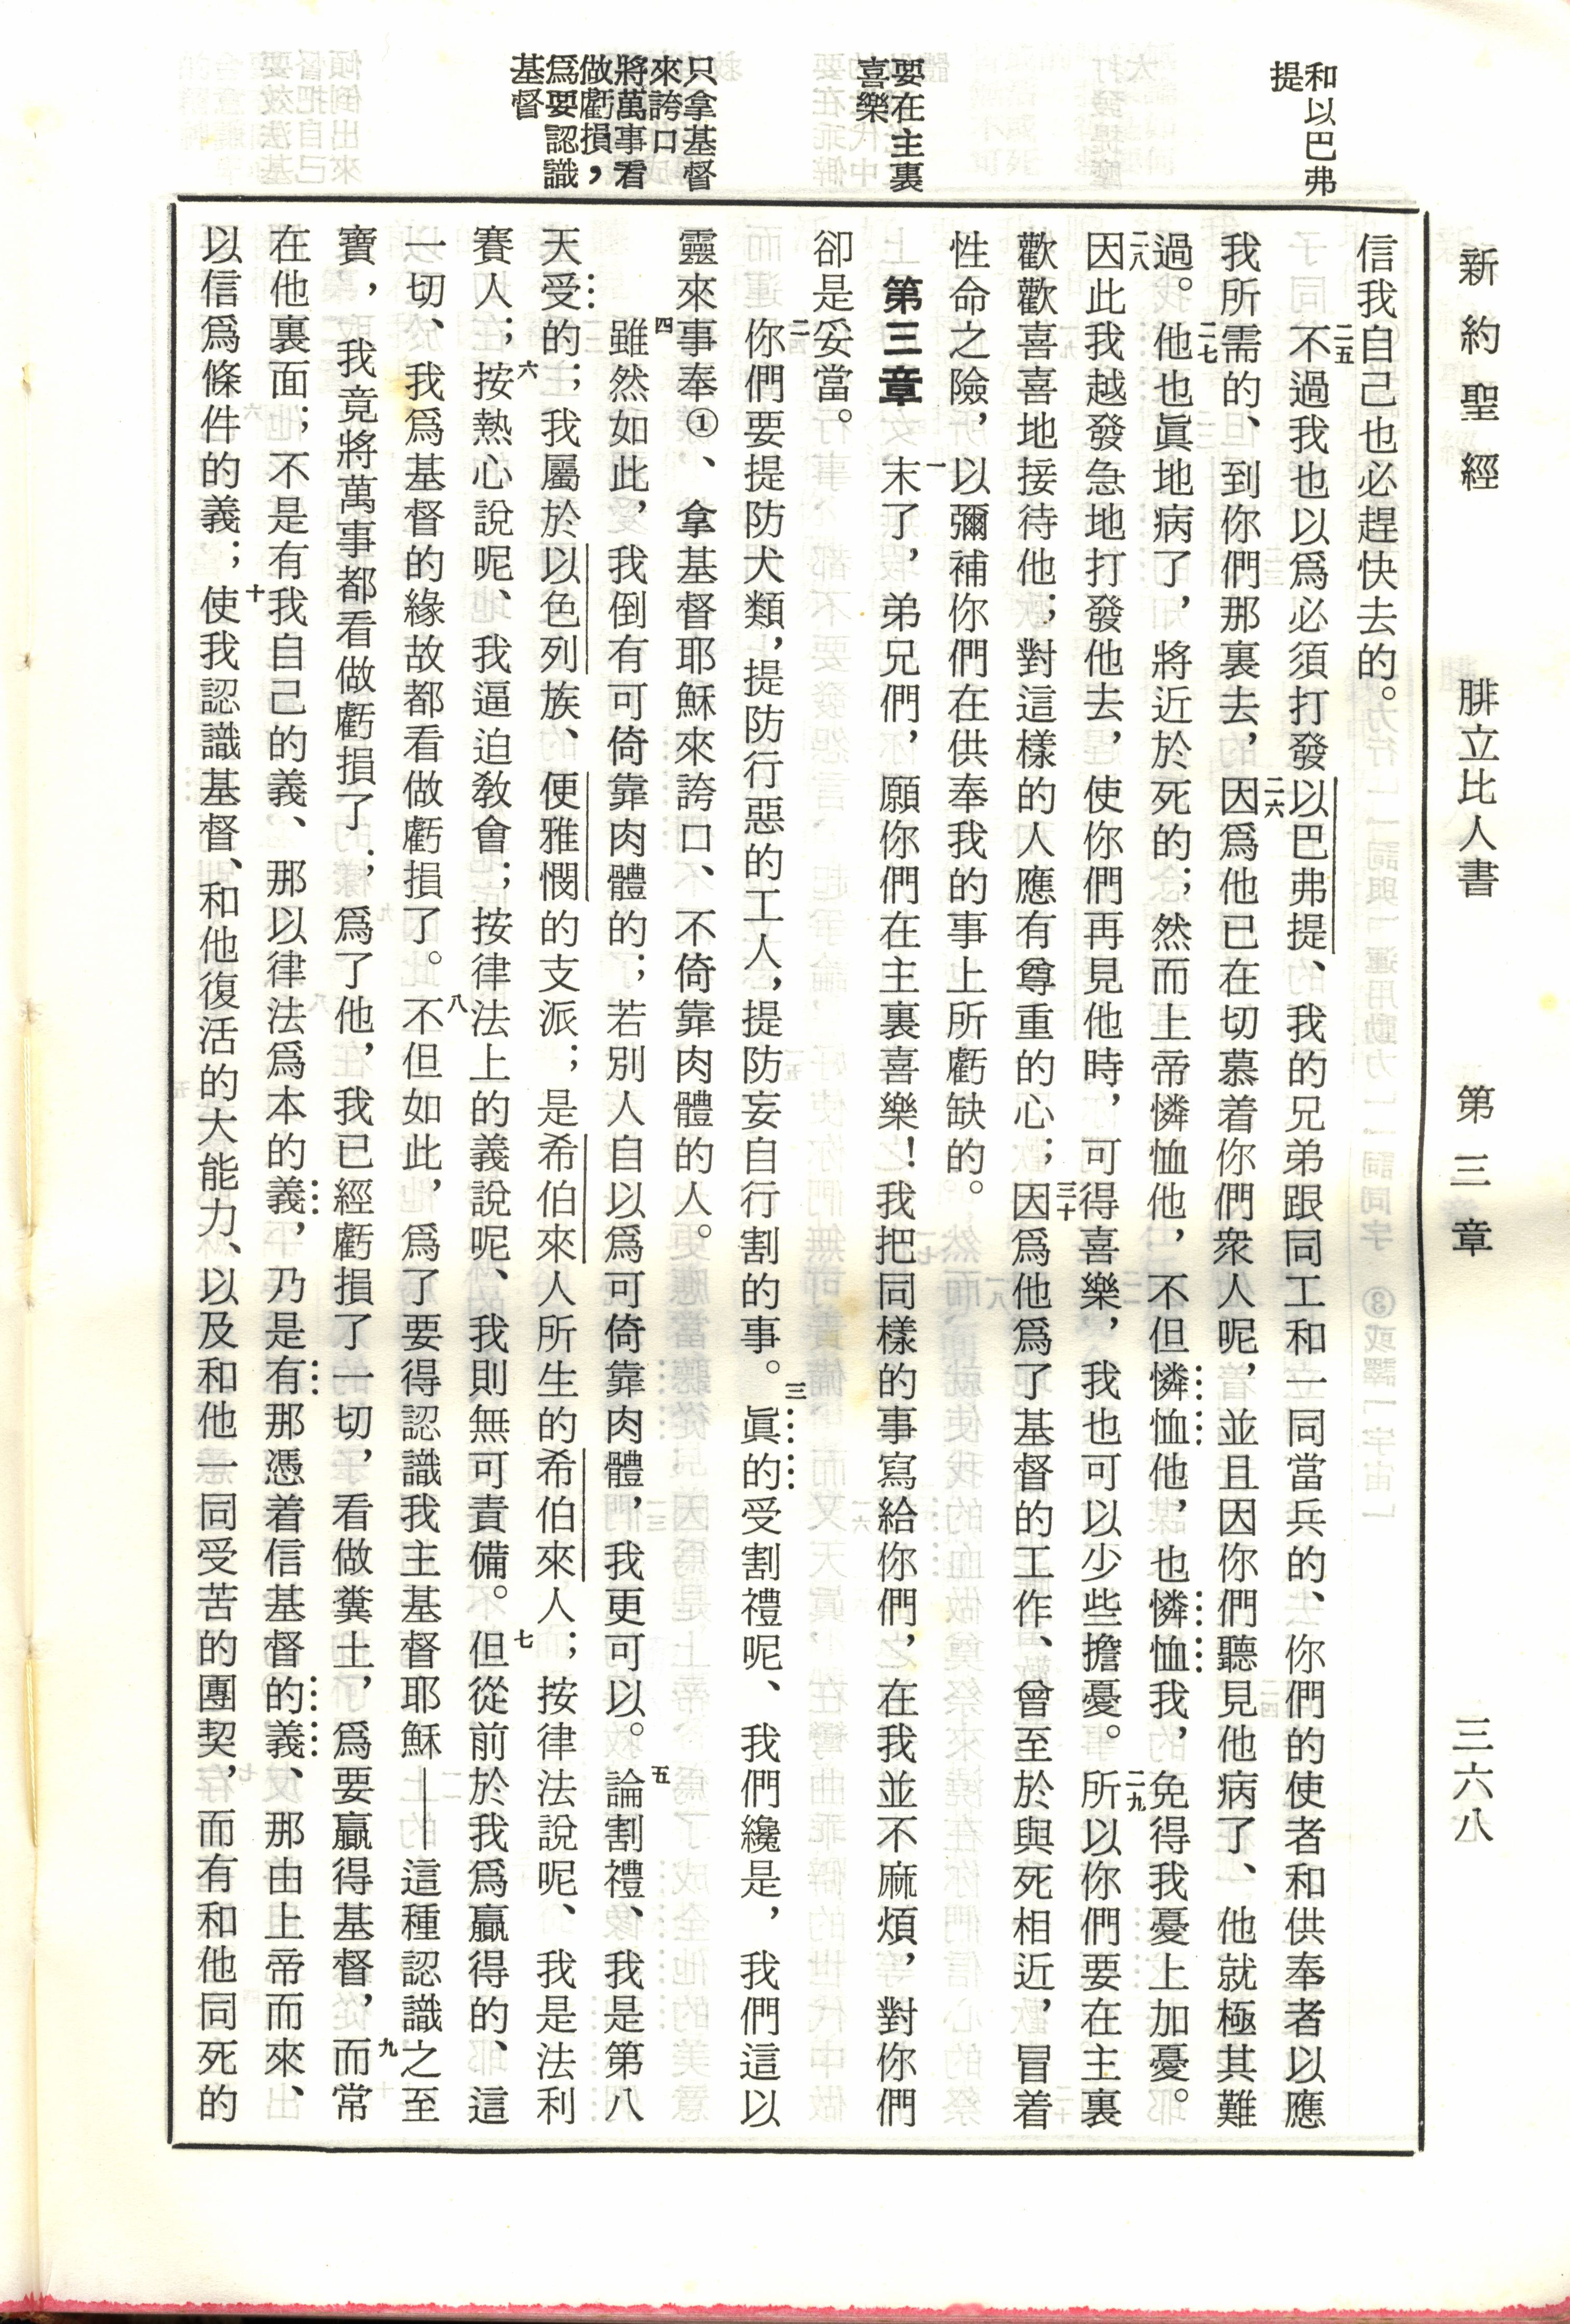 新約聖經 腓立比人書 第三章 三六八
和以巴弗
提
要在主裏
喜樂
只拿基督
來誇口
將萬事看
做虧損，
爲要認識
基督
信我自己也必趕快去的。
二五不過我也以爲必須打發以巴弗提、我的兄弟跟同工和一同當兵的、你們的使者和供奉者以應
我所需的、到你們那裏去，二六因爲他已在切慕着你們衆人呢，並且因你們聽見他病了、他就極其難
過。二七他也眞地病了，將近於死的；然而上帝憐恤他，不但憐恤他，也憐恤我，免得我憂上加憂。
二八因此我越發急地打發他去，使你們再見他時，可得喜樂，我也可以少些擔憂。二九所以你們要在主裏
歡歡喜喜地接待他；對這樣的人應有尊重的心；三十因爲他爲了基督的工作、曾至於與死相近，冒着
性命之險，以彌補你們在供奉我的事上所虧缺的。
第三章 一末了，弟兄們，願你們在主裏喜樂！我把同樣的事寫給你們，在我並不麻煩，對你們
卻是妥當。
二四你們要提防犬類，提防行惡的工人，提防妄自行割的事。三眞的受割禮呢、我們纔是，我們這以
靈來事奉①、拿基督耶穌來誇口、不倚靠肉體的人。
四雖然如此，我倒有可倚靠肉體的；若別人自以爲可倚靠肉體，我更可以。五論割禮、我是第八
天受的；我屬於以色列族、便雅憫的支派；是希伯來人所生的希伯來人；按律法說呢、我是法利
賽人；六按熱心說呢、我逼迫教會；按律法上的義說呢、我則無可責備。七但從前於我爲贏得的、這
一切、我爲基督的緣故都看做虧損了。八不但如此，爲了要得認識我主基督耶穌——這種認識之至
寶，我竟將萬事都看做虧損了；爲了他，我已經虧損了一切，看做糞土，爲要贏得基督，九而常
在他裏面；不是有我自己的義、那以律法爲本的義，乃是有那憑着信基督的義、那由上帝而來、
以信爲條件的義；十使我認識基督、和他復活的大能力、以及和他一同受苦的團契，而有和他同死的